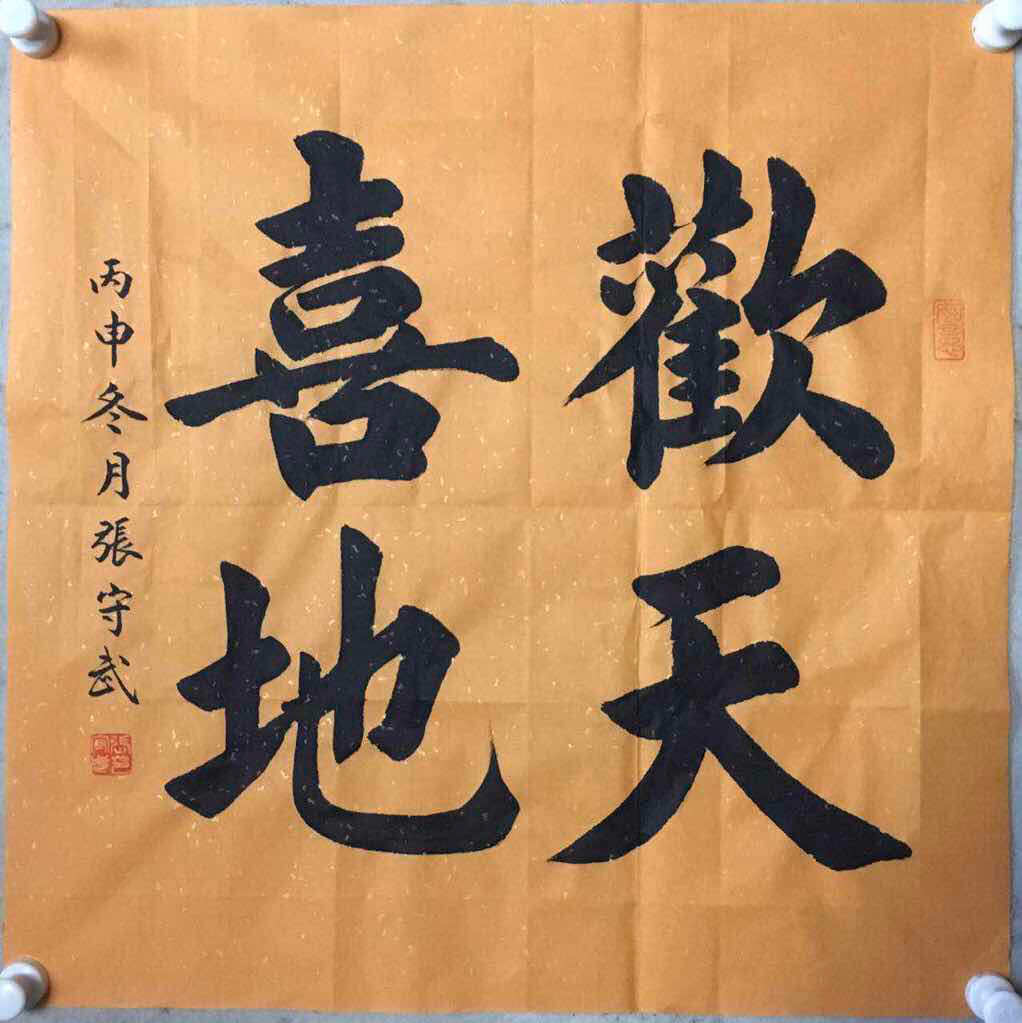 歡天
喜地
丙申冬月張守武